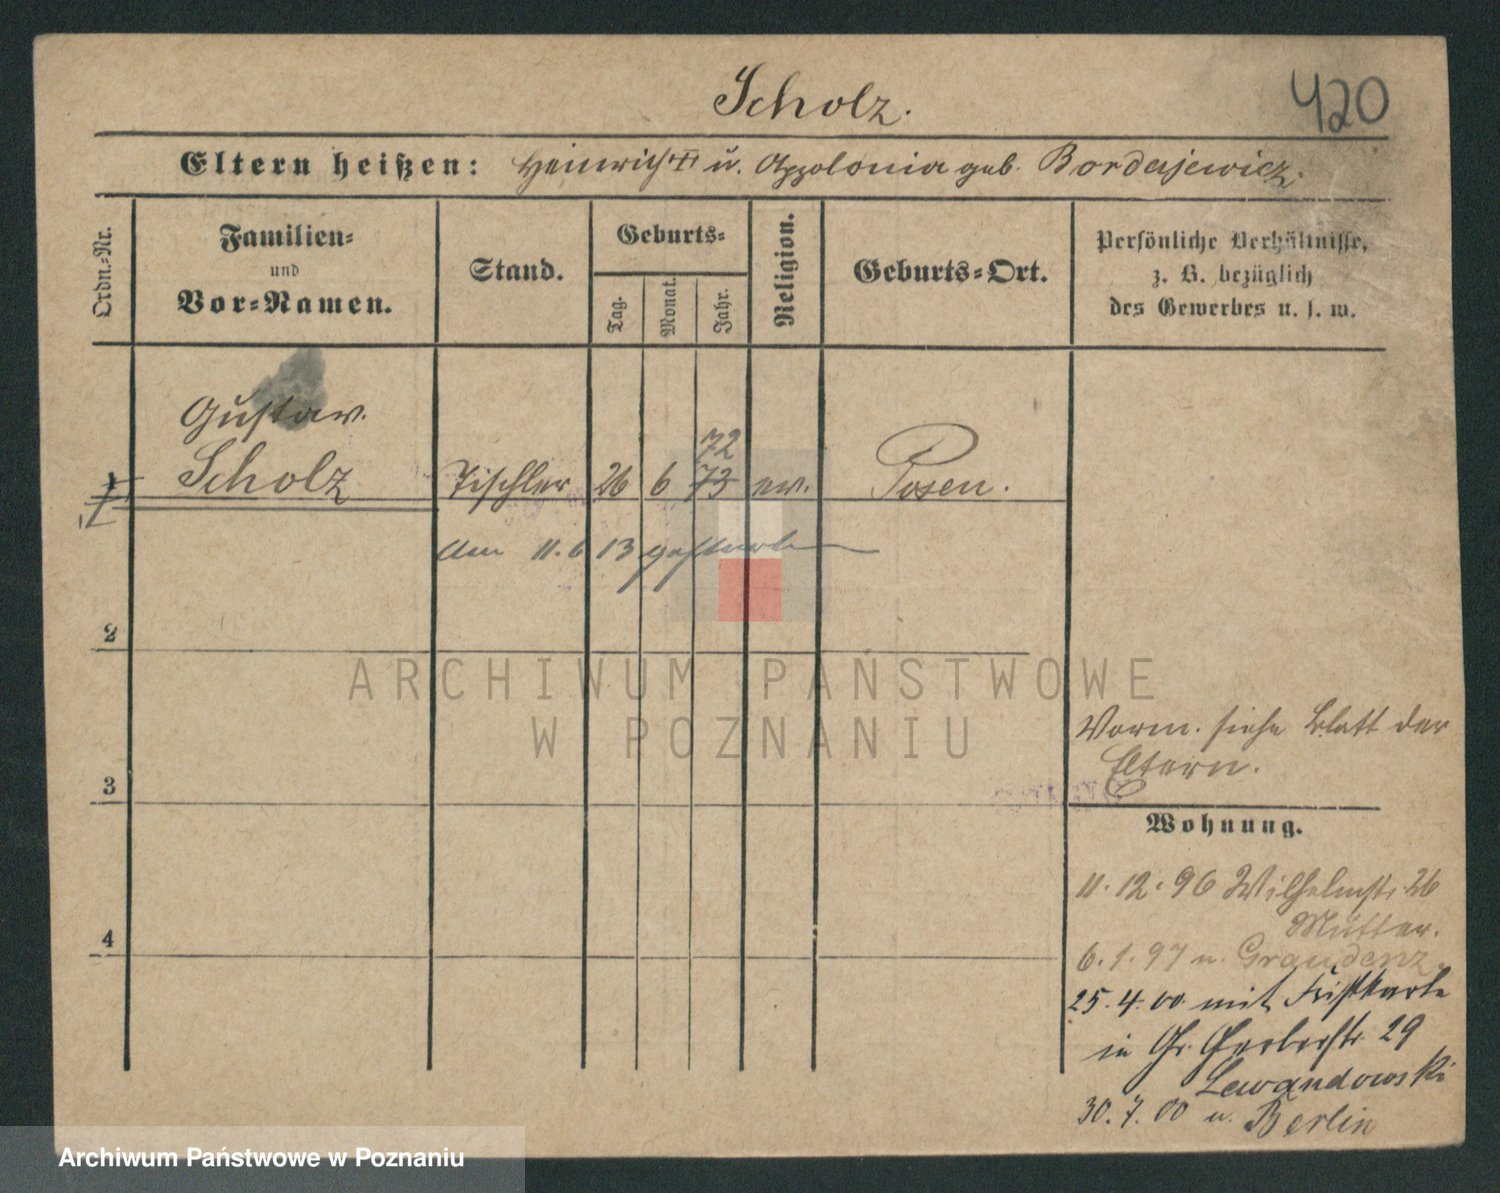 Scholz.
420
Eltern heißen: Heinrich III u. Appolonia geb. Borderjewicz.
Ordn.-Nr.
Familien-
und
Vor-Namen.
Stand.
Geburts-
Tag.
Monat.
Jahr.
Religion.
Geburts-Ort.
Persönliche Verhältnisse,
z. B. bezüglich
des Gewerbes u. s. w.
Gustav.
72
1 Scholz Tischler 26 6 73 ev. Posen.
Am 11.6 13 gestorben
2
ARCHIWUM PAŃSTWOWE
W POZNANIU
Vorm. siehe Blatt der
Eltern.
3
Wohnung.
11.12.96 Wilhelmstr. 26
Mutter.
4
6.1.97 n. Graudenz
25.4.00 mit
in Gr. Gerberstr. 29
Lewandowski
30.7.00 n. Berlin
Archiwum Państwowe w Poznaniu